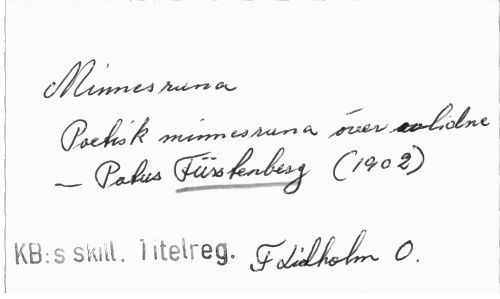 Minnesruna
Poetisk minnesruna över avlidne
— Pontus Fürstenberg (1902)
KB:s skill. Titelreg. F Lidholm O.